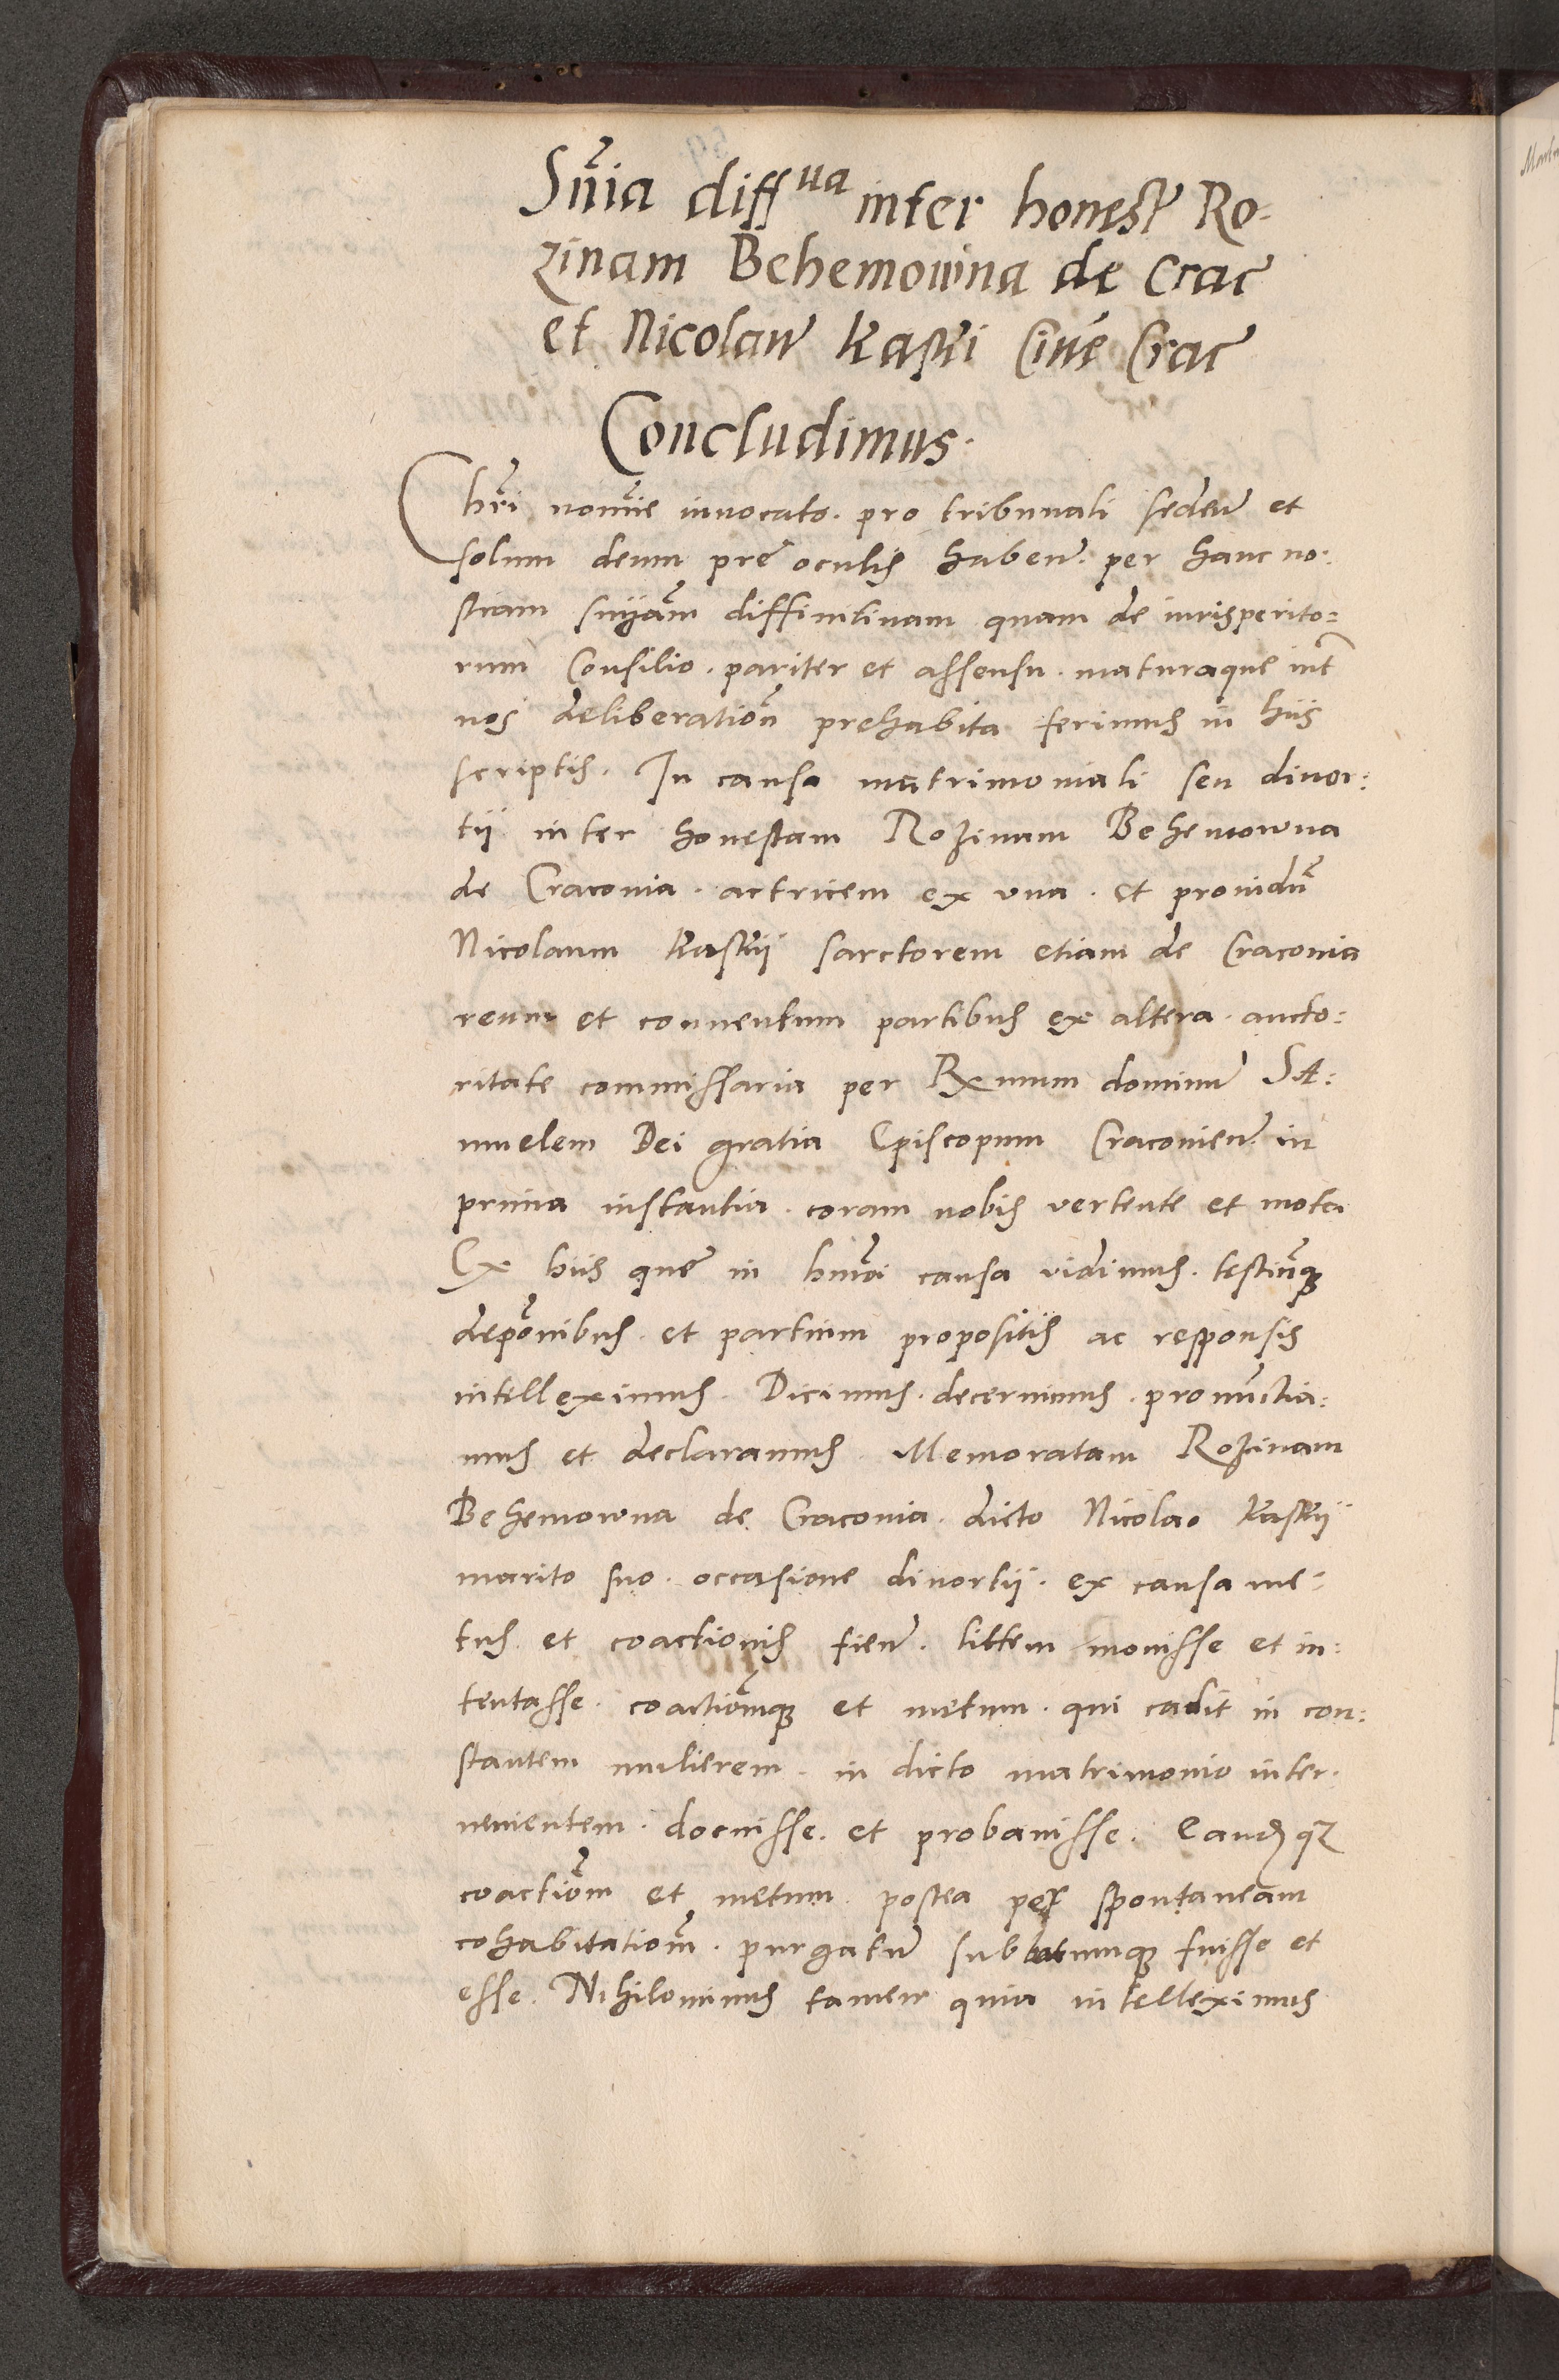 Sñia diffua inter honest Ro-
zinam Behemowna de Crac
et Nicolaum Kaspri Civē Crac
Concludimus.
Chri nomīe invocato. pro tribunali seden et
solum deum pre oculis haben. per hanc no.
stram snīam diffinitivam quam de iurisperito=
rum Consilio. pariter et assensu. maturaque int
nos deliberatiōn prehabita ferimus in hiis
scriptis. In causa matrimoniali seu divor:
tii inter honestam Rozinam Behemowna
de Craconia. actricem ex una. et providū
Nicolaum sarctorem etiam de Craconia
reum et conventum partibus ex altera. aucto:
ritate commissaria per Rxmum dominum SA:
muelem Dei gratia Episcopum Craconien. in
prima instantia. coram nobis vertente et mota
Ex hiis que in hmōi causa vidimus. testiumq
depōnibus. et partium propositis ac responsis
intelleximus. Dicimus. decernimus. pronūctia:
mus et declaramus. Memoratam Rozinam
Behemowna de Craconia. dicto Nicolao
marito suo. occasione divortii. ex causa me=
tus et coactionis fien. littem movisse et in:
tentasse. coactiōmq et metum. qui cadit in con:
stantem mulierem. in dicto matrimonio inter.
venientem. docuisse. et probavisse. Eandq
coactiōm et metum postea per spontaneam
cohabitatiōm. purgatum sublatumq fuisse et
esse. Nihilominus tamen quia intelleximus